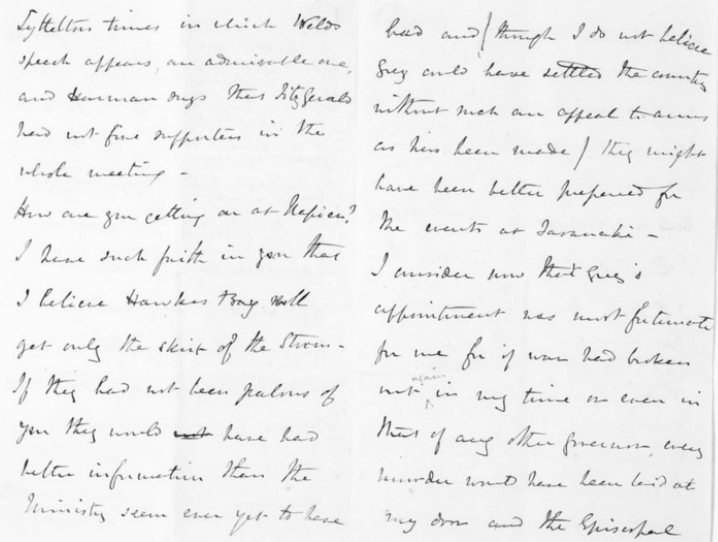 Lyttelton times in which Welds
speech appears, an admirable one,
and Harman says that FitzGerald
had not five supporters in the
whole meeting -
How are you getting on at Napier?
I have such faith in you that
I believe Hawkes Bay will
get only the skirt of the Storm -
If they had not been jealous of
you they would not have had
better information than the
Ministry seem ever yet to have
had and (though I do not believe
Grey could have settled the country
without such an appeal to arms
as has been made) they might
have been better prepared for
the events at Taranaki -
I consider now that Grey's
appointment was most fortunate
for me for if war had broken
out again in my time or even in
that of any other Governor, every
murder would have been laid at
my door and the Episcopal